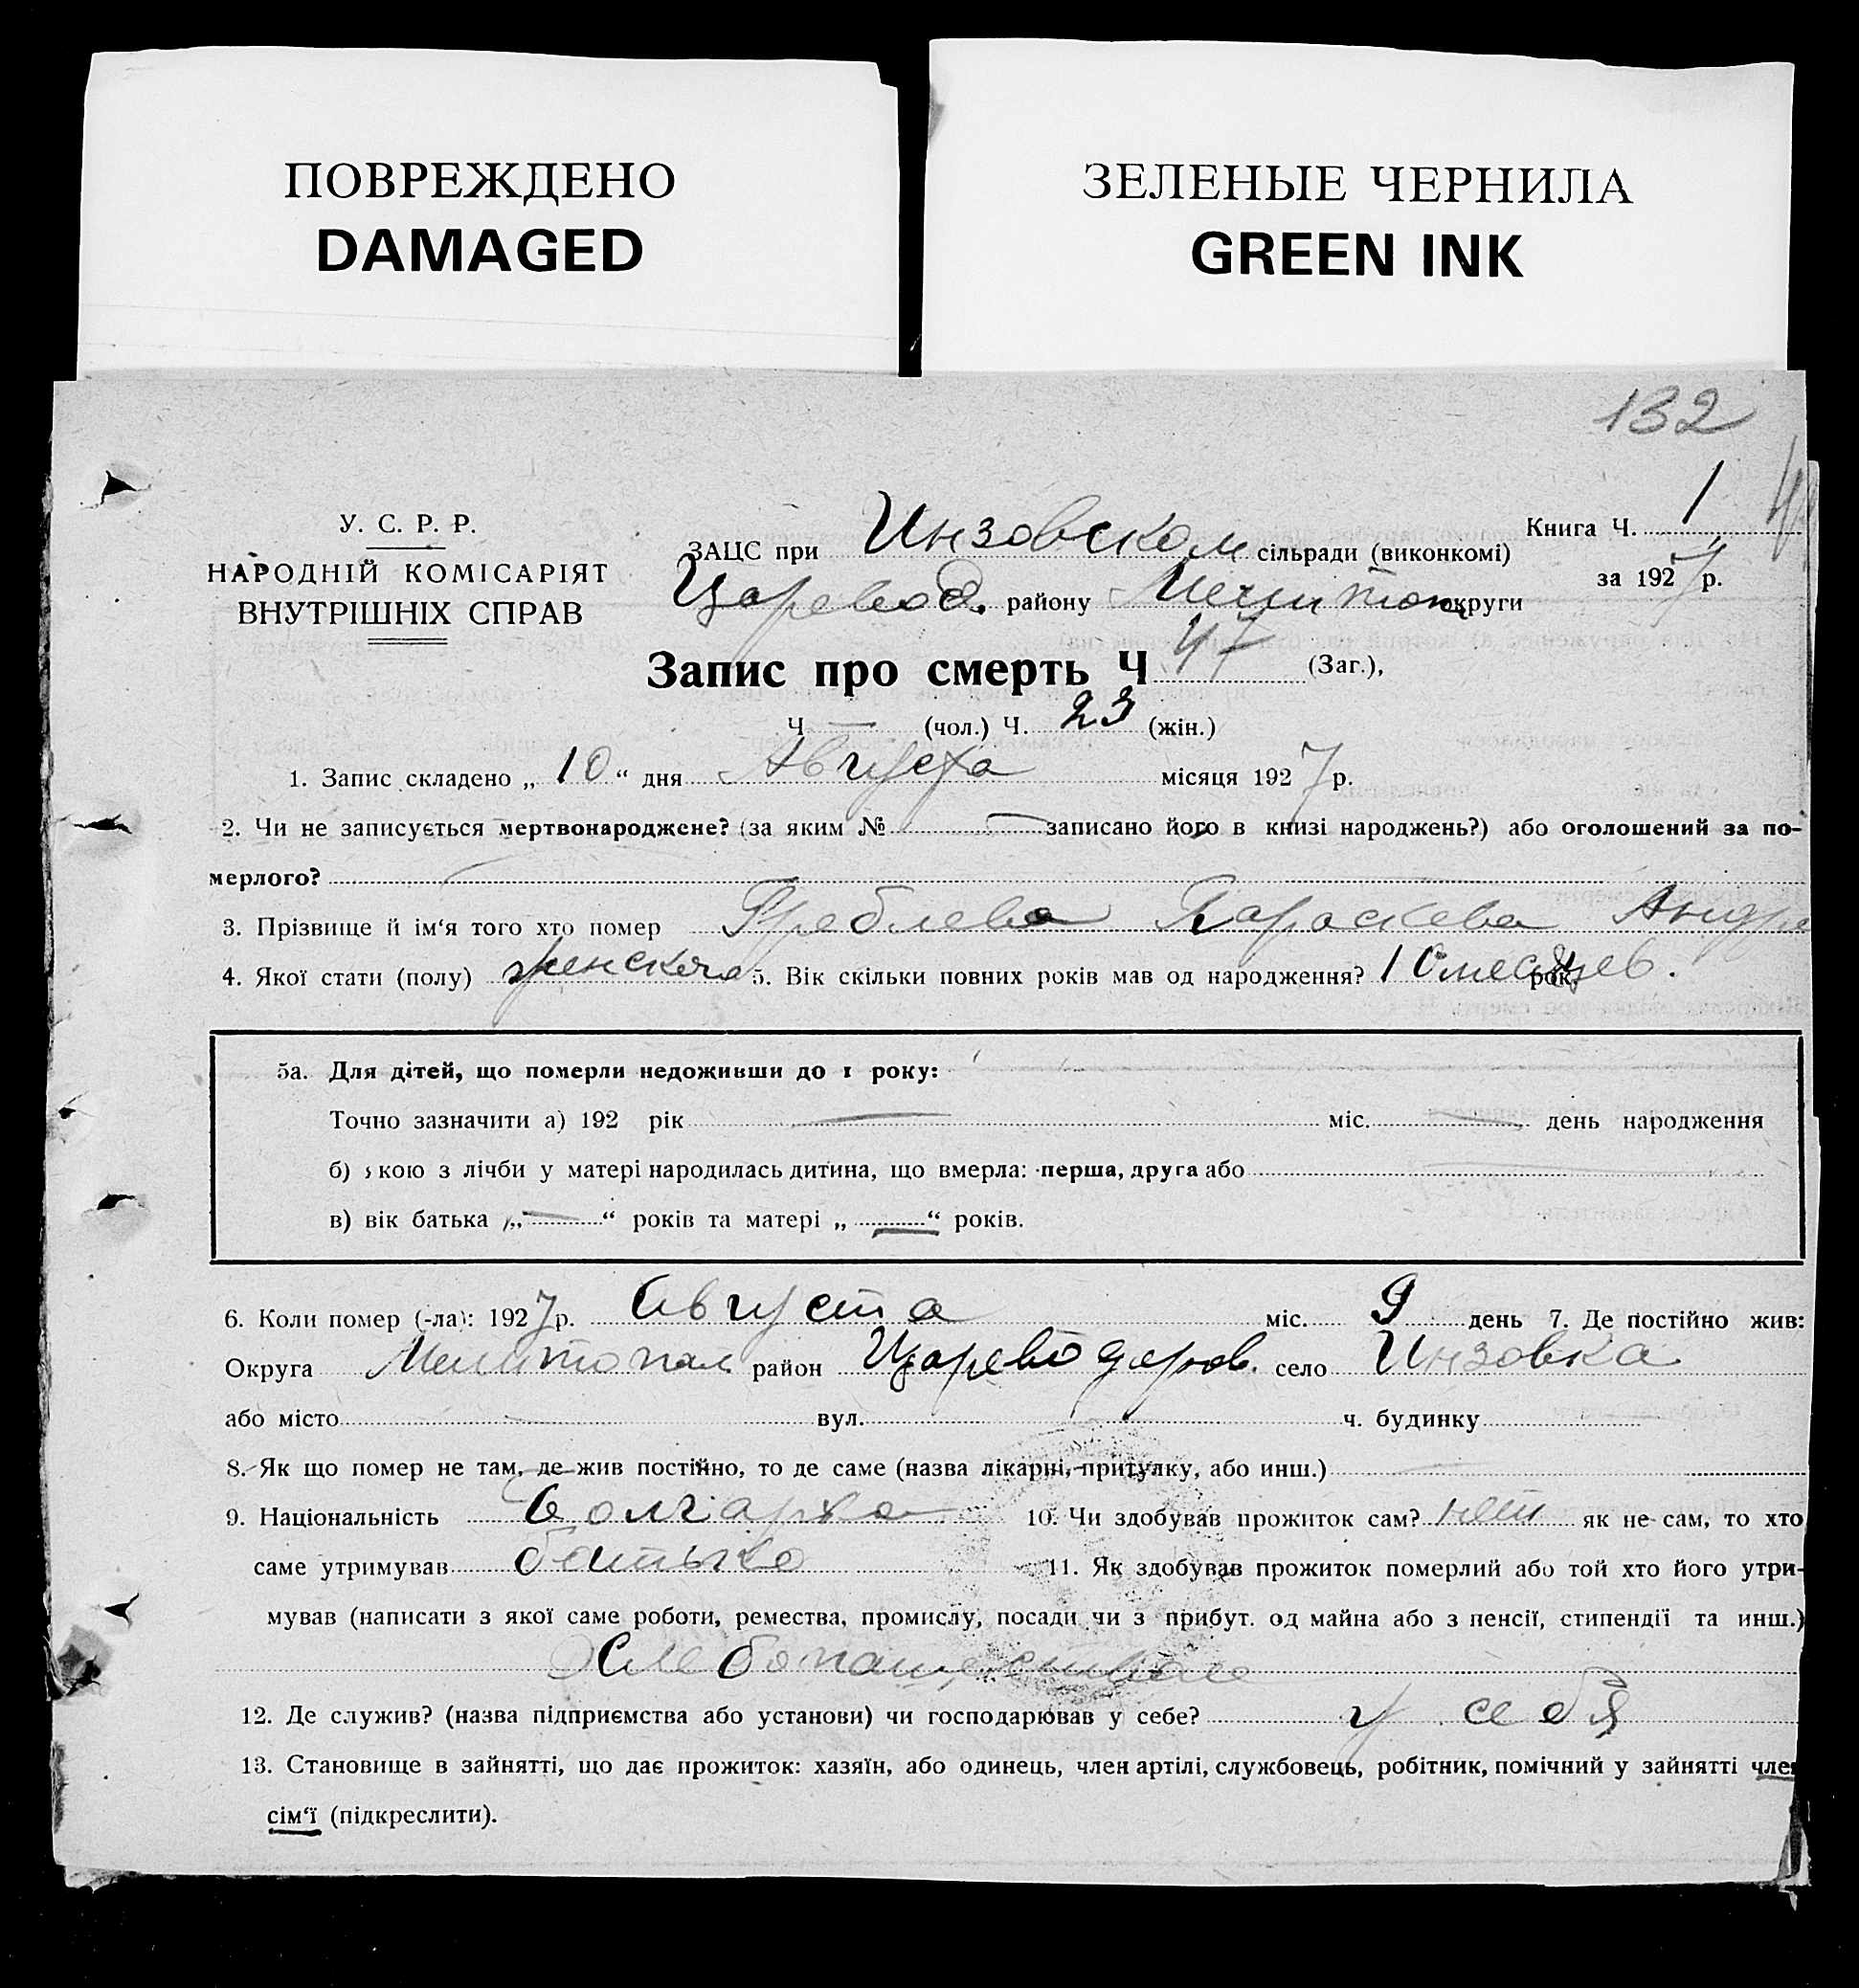 ПОВРЕЖДЕНО
DAMAGED
ЗЕЛЕНЫЕ ЧЕРНИЛА
GREEN INK
132
У. С. Р. Р.
НАРОДНІЙ КОМІСАРІЯТ
ВНУТРІШНІХ СПРАВ
Книга Ч. 1
за 1927 р.
ЗАЦС при Инзовском сільради (виконкомі)
Царевод. району Мелитоп округи
Запис про смерть Ч 47 (Заг.),
Ч — (чол.) Ч. 23 (жін.)
1. Запис складено „ 10 “ дня Августа місяця 1927 р.
2. Чи не записується мертвонароджене? (за яким № — записано його в книзі народжень?) або оголошений за по-
мерлого?
3. Прізвище й ім‘я того хто помер Греблева Параскева Андре
4. Якої стати (полу) женского 5. Вік скільки повних років мав од народження? 10 месяцев. рок.
5а. Для дітей, що померли недоживши до 1 року:
Точно зазначити а) 192 рік — міс. — день народження
б) кою з лічби у матері народилась дитина, що вмерла: перша, друга або
в) вік батька „ — “ років та матері „ — “ років.
6. Коли помер (-ла): 1927 р. Августа міс. 9 день 7. Де постійно жив:
Округа Мелитопол район Цареводаров. село Инзовка
або місто вул. ч. будинку
8. Як що помер не там, де жив постійно, то де саме (назва лікарні, притулку, або инш.)
9. Національність болгарка 10. Чи здобував прожиток сам? нет як не сам, то хто
саме утримував батько 11. Як здобував прожиток померлий або той хто його утри-
мував (написати з якої саме роботи, ремества, промислу, посади чи з прибут. од майна або з пенсії, стипендії та инш.)
Хлебопашеством
12. Де служив? (назва підприємства або установи) чи господарював у себе? у себя
13. Становище в зайнятті, що дає прожиток: хазяїн, або одинець, член артілі, службовець, робітник, помічний у зайнятті член
сім‘ї (підкреслити).